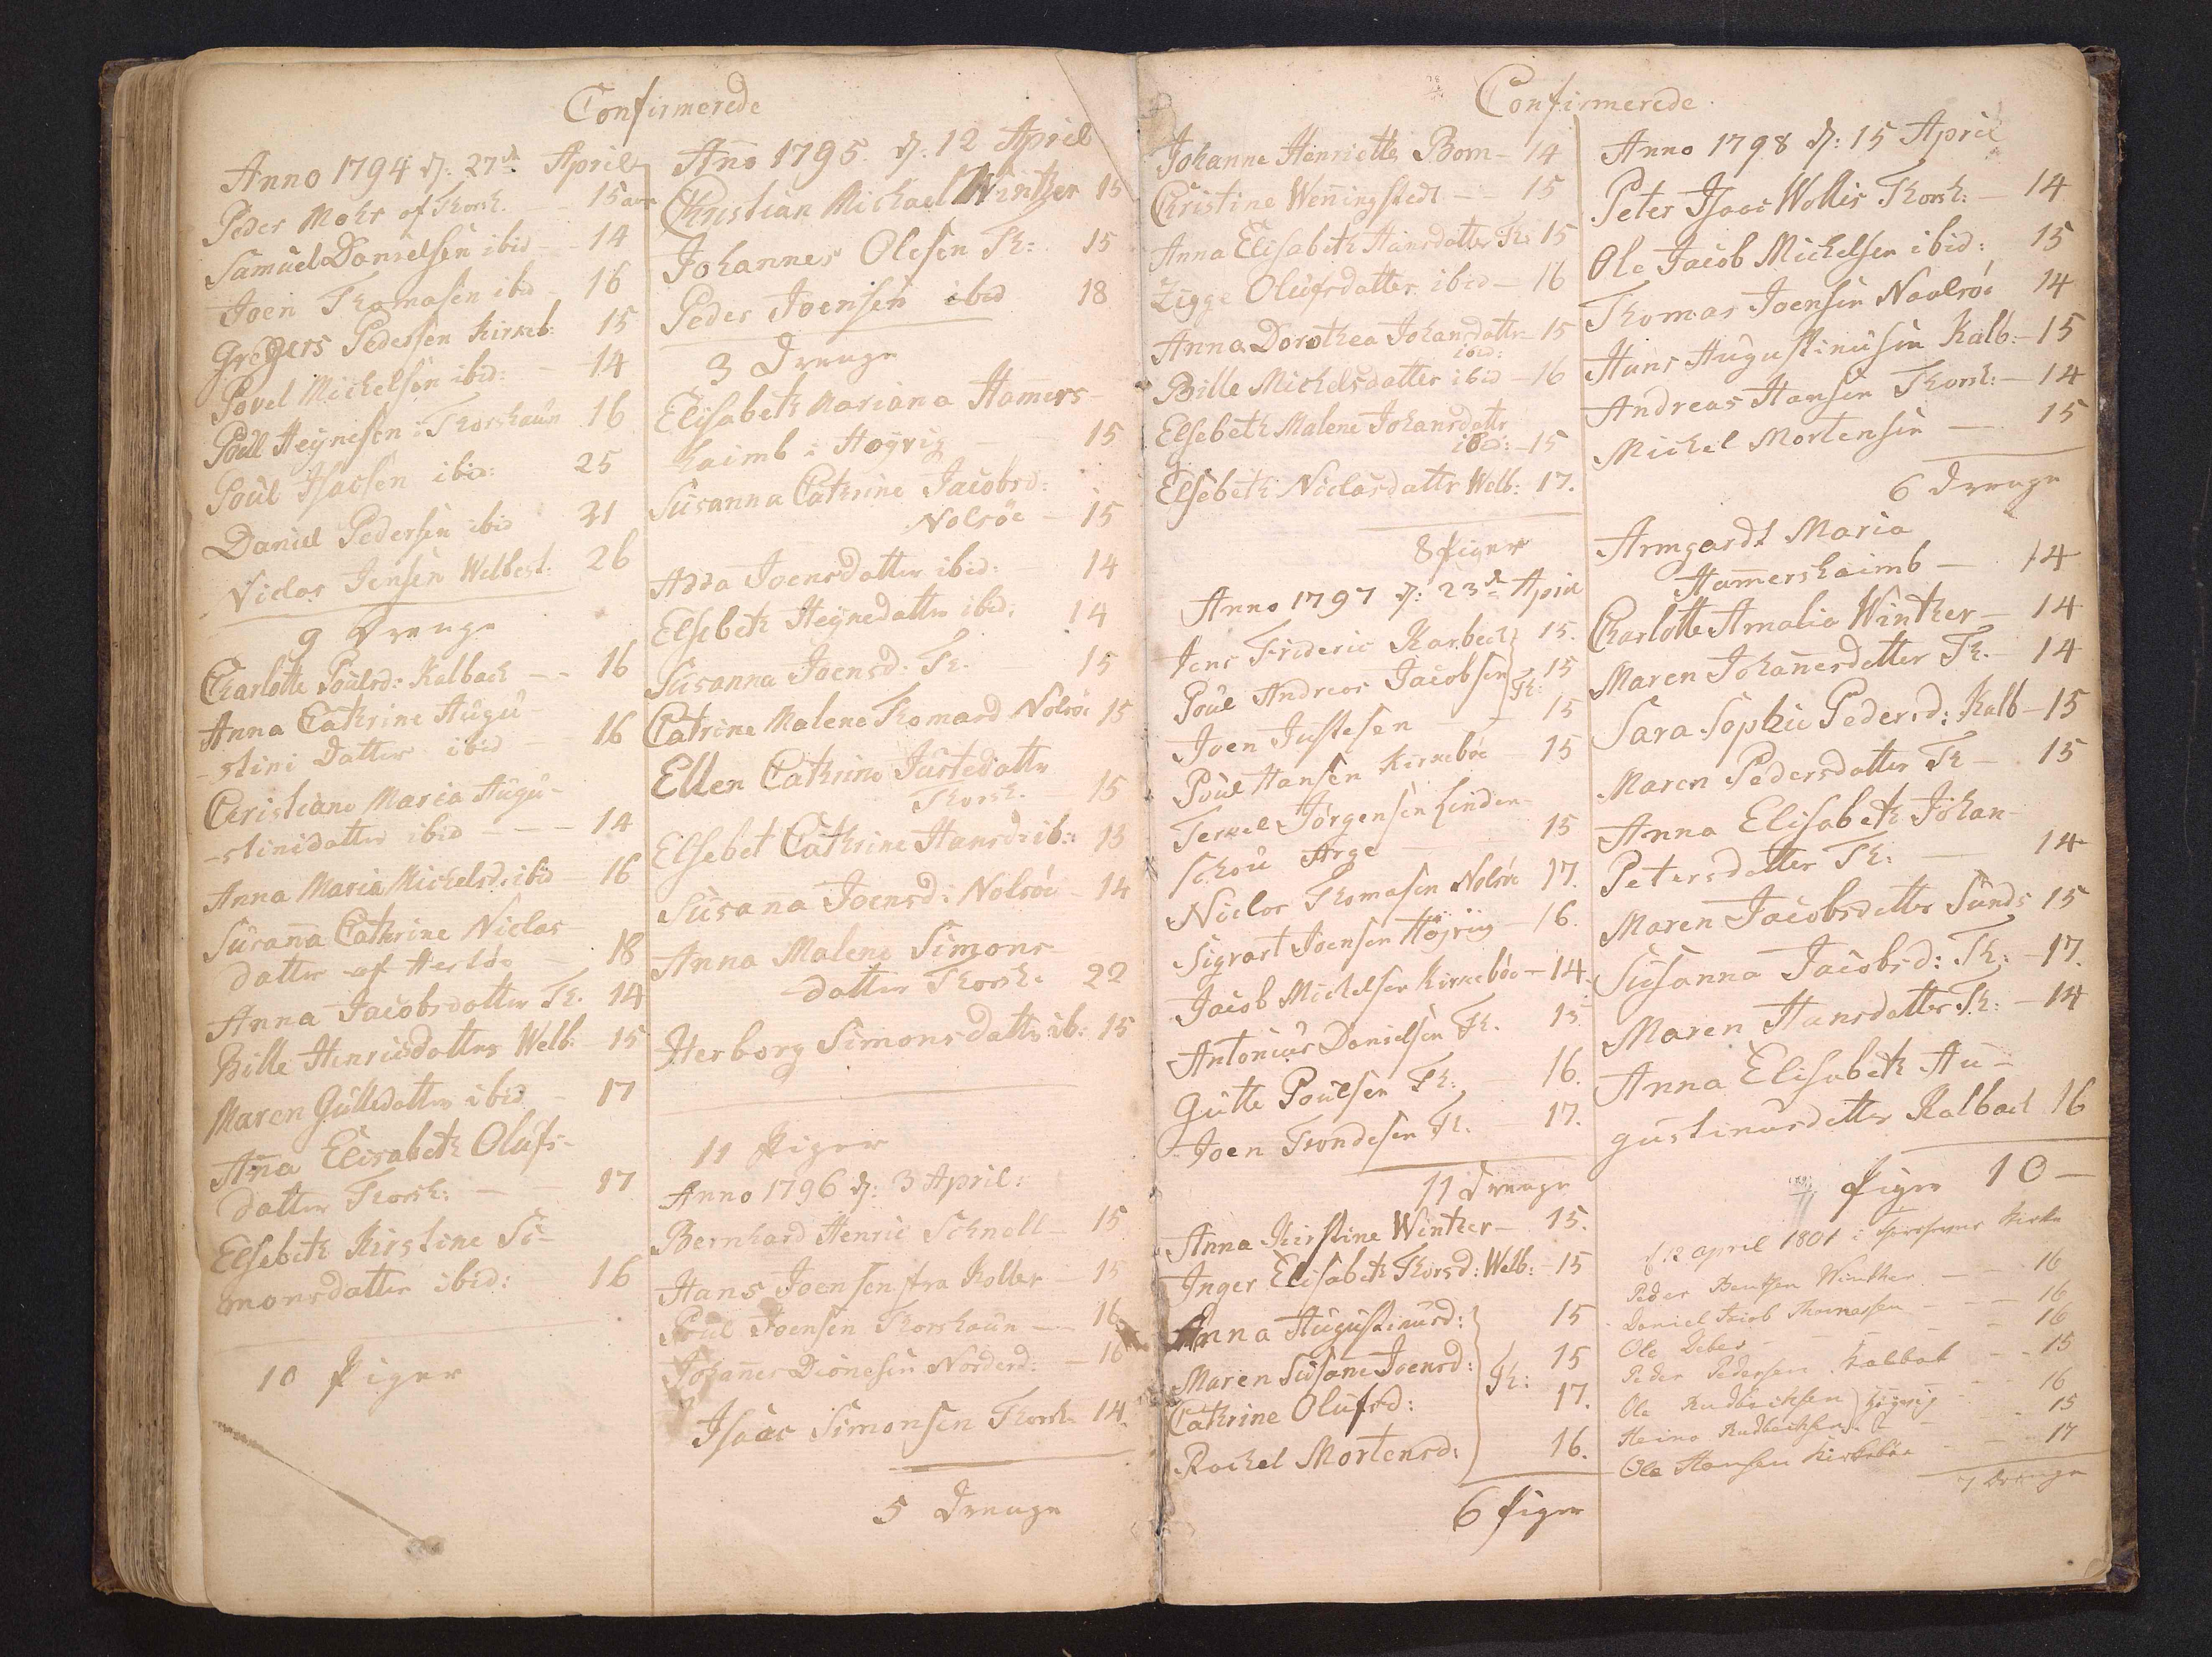 Confirmerede
Anno 1794 d: 27de April
Peder Mohr af Thorsh. 15 aar
Samuel Danielsen ibid 14
Joen Thomasen ibid 16
Gregers Pedersen Kirkeb: 15
Povel Michelsen ibid: 14
Poell Heynesen i Thorshaun 16
Poul Isacsen ibid: 25
Daniel Pedersen ibid 21
Niclas Jensen Welbest: 26
9 Drenge
Charlotte Poulsd: Kalbach 16
Anna Cathrine Augu-
-stini Datter ibid 16
Christiane Maria Augu-
-stinidatter ibid 14
Anna Maria Michelsd: ibid 16
Susanna Cathrine Niclas
datter af Hestöe 18
Anna Jacobsdatter Th. 14
Bille Henricdatter Welb: 15
Maren Guttedatter ibid 17
Anna Elisabeth Olufs-
datter Thorsh: 17
Elsebeth Kirstine Si-
monsdatter ibid: 16
10 Piger
Ano 1795 d. 12 April
Christian Michael Winther 15
Johannes Olesen Th: 15
Peder Joensen ibid 18
3 Drenge
Elisabeth Mariana Hamers-
haimb i Høyvig 15
Susanna Cathrine Jacobsd:
Nolsöe 15
Adda Joensdatter ibid: 14
Elsebeth Heynedatter ibid: 14
Susanna Joensd. Th. 15
Catrine Malene Thomasd Nolsöe 15
Ellen Cathrine Justedatter
Thorsh. 15
Elsebet Cathrine Hansd: ib: 13
Susana Joensd: Nolsöe 14
Anna Malene Simons-
datter Thorsh: 22
Herborg Simonsdatter ib: 15
11 Piger
Anno 1796 d: 3 April:
Bernhard Henric Schnell 15
Hans Joensen fra Kolter 15
Poul Joensen Thorshaun 16
Johanes Dionesen Norderd: 16
Isaac Simonsen Thorsh: 14.
5 Drenge
Confirmerede
Johanne Henriette Bom 14
Christine Weningstedt 15
Anna Elisabeth Hansdatter Th: 15
Zigge Olufsdatter ibid 16
Anna Dorothea Johansdatter 15
ibid:
Bille Michelsdatter ibid 16
Elsebeth Malene Johansdattr
ibid: 15
Elsebeth Niclasdattr Welb: 17.
8 Piger
Anno 1797 d: 23de April
Jens Frideric Karbech 15.
Poul Andreas Jacobsen 15
Th:
Joen Justesen 15
Poul Hansen Kirkeböe 15
Terkel Jörgensen Linden-
schou Arge 15
Niclas Thomasen Nolsöe 17.
Sigvart Joensen Höjvig 16.
Jacob Michelsen Kirkeböe 14.
Antonius Danielsen Th. 15
Gutte Poulsen Th: 16.
Joen Trondesen Th. 17.
11 Drenge
Anna Kirstine Winther 15.
Inger Elisabeth Thorsd: Welb: 15
Anna Augustinusd: 15
Maren Susane Joensd: 15
Th:
Cathrine Olufsd: 17.
Rachel Mortensd: 16.
6 Piger
Anno 1798 d: 15 April
Peter Isaac Wollis Thorsh: 14
Ole Jacob Michelsen ibid: 15
Thomas Joensen Naalsöe 14
Hans Augustinusen Kalb: 15
Andreas Hansen Thorsh: 14
Michel Mortensen 15
6 Drenge
Armgardt Maria
Hamershaimb 14
Charlotte Amalia Winther 14
Maren Johanesdatter Th. 14
Sara Sophie Pedersd: Kalb 15
Maren Pedersdatter Th 15
Anna Elisabeth Johan-
Petersdatter Th: 14
Maren Jacobsdatter Sunds 15
Susanna Jacobsd: Th: 17.
Maren Hansdatter Th: 14
Anna Elisabeth Au-
gustinusdatter Kalbach 16
Piger 10
d 12 April 1801 i Kirke
Peder Winther 16
Daniel Jacob Thomassen 16
Ole Debes 16
Peder Pedersen Kalbak 15
Ole Rudbecksen 16
Höjvig
Heine Rudbecksen 15
Ole Hansen Kirkeböe 17
7 Drenge